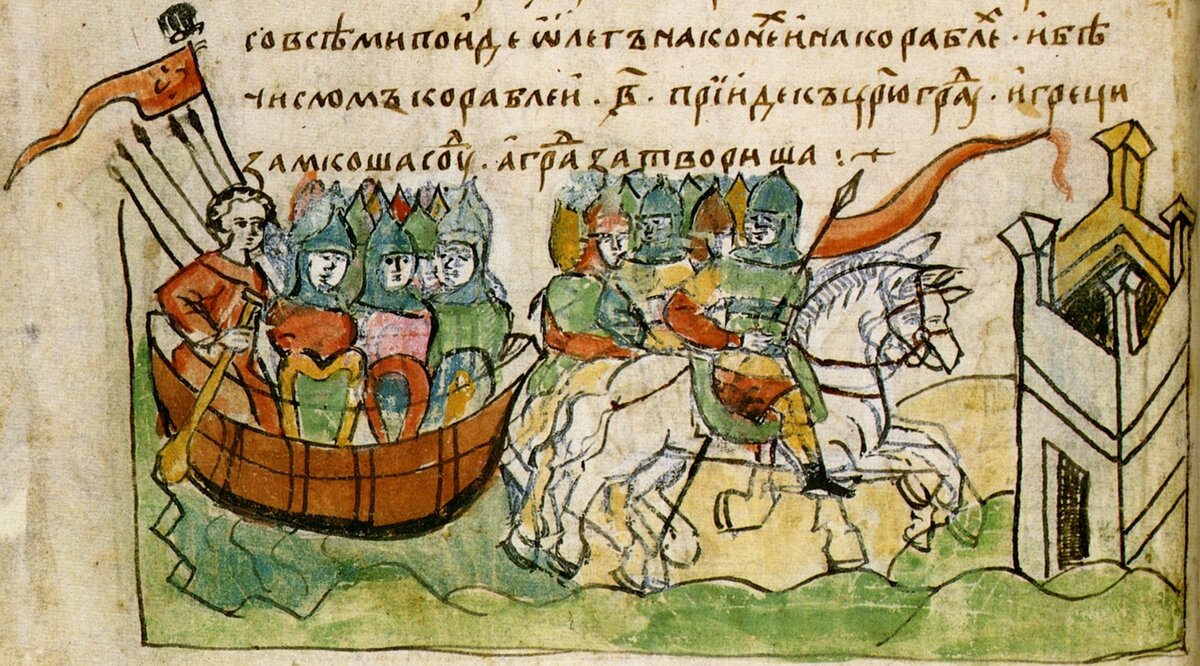 со всѣми поиде ѡлегъ на конеⷯ и на кораблеⷯ · и бѣ
числомъ кораблеи · в҃ · прїиде къ цр҃югрⷣаꙋ · и греци
замкоша соꙋⷣ · а граⷣ затвориша :·